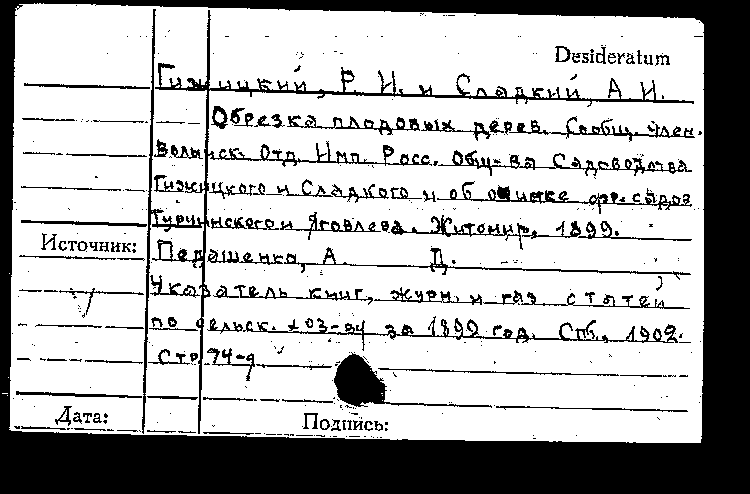 Desideratum
Гижицкий, Р. И. и Сладкий, А. И.
Обрезка плодовых дерев. Сообщ. член.
Волынск. Отд. Имп. Росс. Общ-ва Садоводства
Гижицкого и Сладкого и об
Турчинского и Яковлева. Житомир, 1899.
Источник:
Педашенко, А. Д.
Указатель книг, журн. и газ. статей
по сельск. хоз-ву за 1899 год. Спб., 1902.
Стр. 74-
Дата:
Подпись: